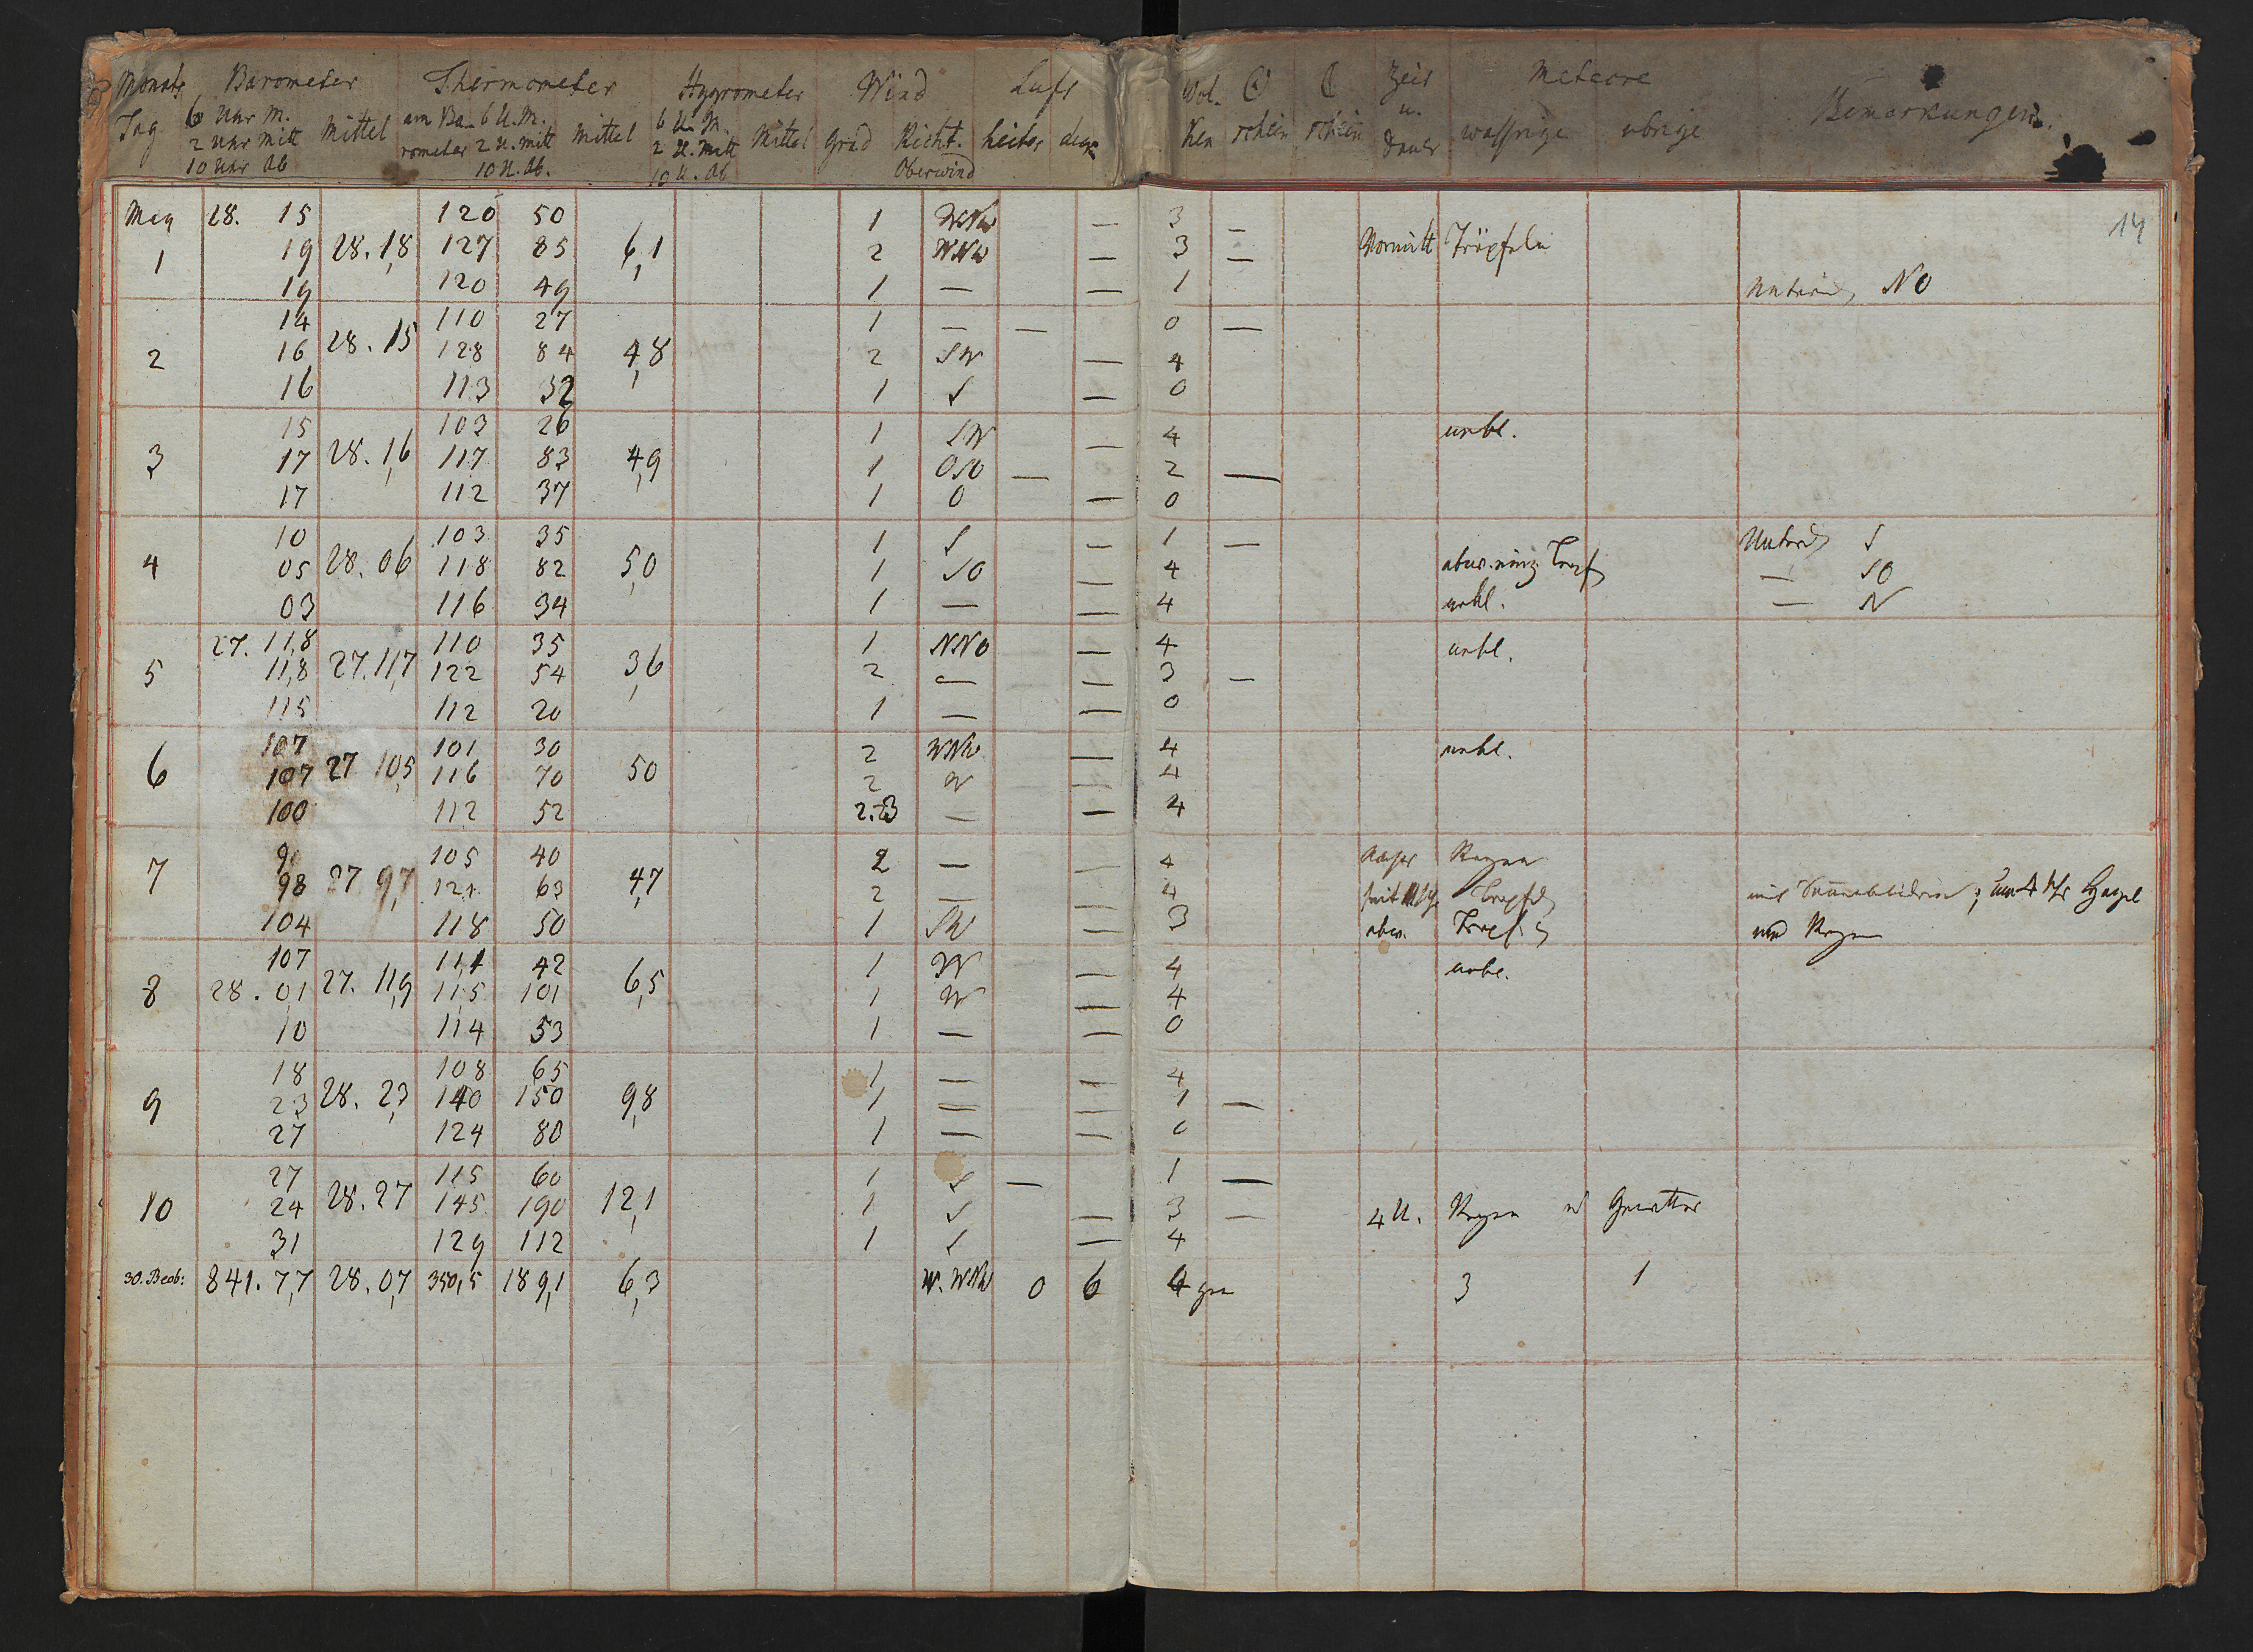 Monats Barometer Thermometer Hygrometer Wind Luft Wol- ☉ ☾ Zeit Meteore Bemerkungen.
Tag 6 Uhr M. Mittel am Ba- 6 U. M. Mittel 6 U. M. Mittel Grad Richt. heiter ken schein schein u. wassrige ubrige
2 Uhr Mitt rometer 2 U. Mitt 2 U. Mitt Oberwind Dauer
10 Uhr Ab 10 U. Ab. 10 U. Ab
14
May 28. 15 120 50 1 WNW — 3 —
1 19 28. 1,8 127 85 6,1 2 WNW — 3 — Vormitt Tröpfeln
19 120 49 1 — — 1 NO
14 110 27 1 — — 0 —
2 16 28. 15 128 84 4,8 2 SW — 4
16 113 32 1 S — 0
15 103 26 1 SW — 4 nebl.
3 17 28. 1,6 117 83 4,9 1 OSO — 2 —
17 112 37 1 O — 0
10 103 35 1 S — 1 — S
4 05 28. 06 118 82 5,0 1 SO — 4 — SO
03 116 34 1 — — 4 nebl. — N
27. 11,8 110 35 1 NNO — 4 nebl.
5 11,8 27. 11,7 122 54 3,6 2 — — 3 —
115 112 20 1 — — 0
107 101 30 2 WNW — 4 nebl.
6 107 27 10,5 116 70 50 2 W — 4
100 112 52 2.3 — — 4
9 105 40 2 — — 4 Regen
7 98 27 9,7 121 63 4,7 2 — — 4 um 4 Uhr Hagel
104 118 50 1 SW — 3 und Regen
107 111 42 1 W — 4 nebl.
8 28. 01 27. 11,9 115 101 6,5 1 W — 4
10 114 53 1 — — 0
18 108 65 1 — — 4
9 23 28. 2,3 140 150 9,8 1 — — 1 —
27 124 80 1 — — 0
27 115 60 1 S — 1 —
10 24 28. 27 145 190 12,1 1 S — 3 — 4 U. Regen u Gewitter
31 129 112 1 S — 4
30. Beob: 841. 7,7 28. 0,7 350,5 189,1 6,3 W. WNW 0 6 4 3 1